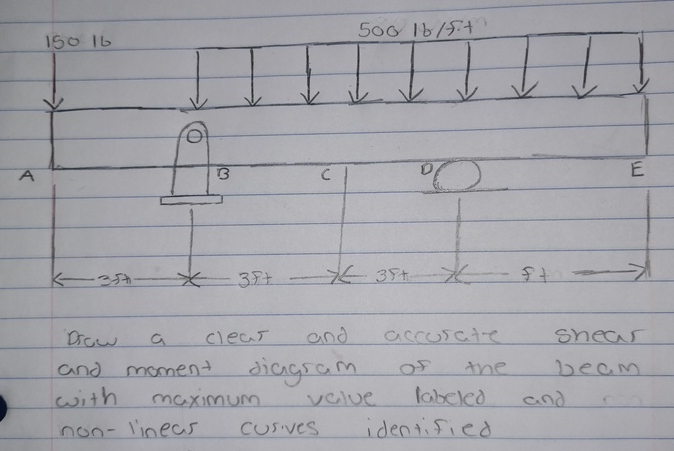 500 lb/ft
150 lb
A B C D E
3ft 3ft 3ft ft
Draw a clear and accurate shear
and moment diagram of the beam
with maximum value labeled and
non-linear curves identified